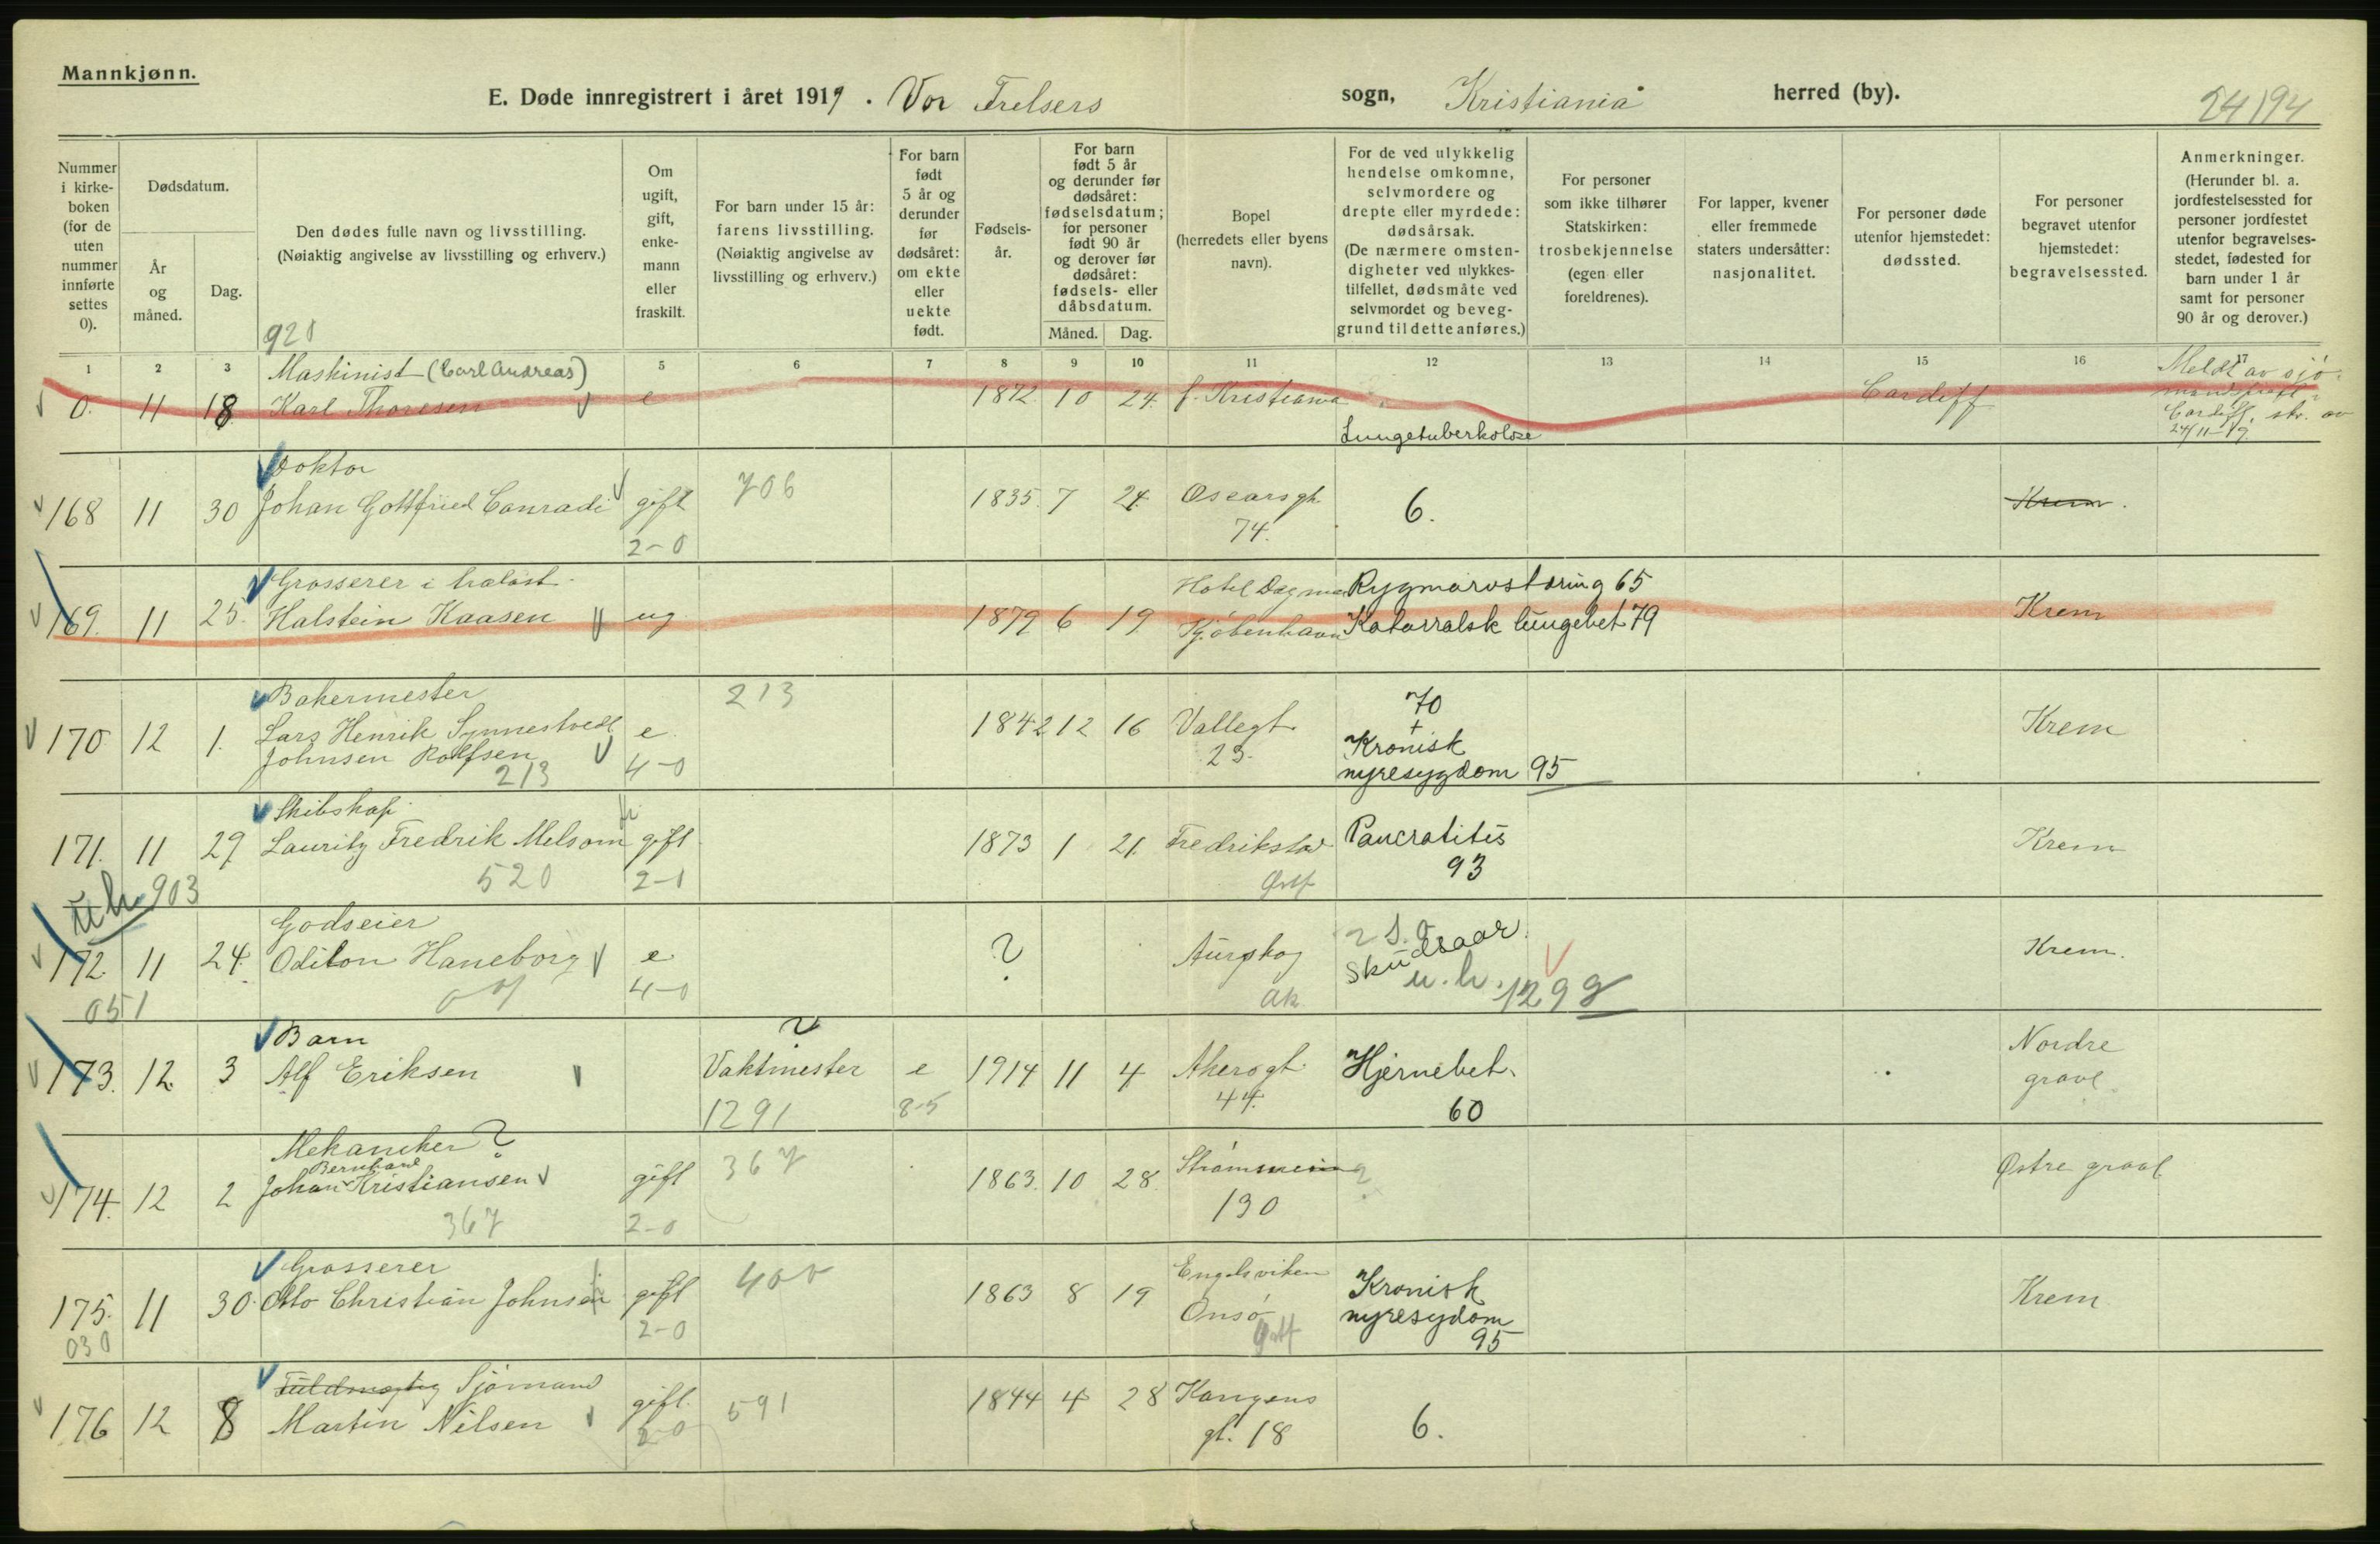 Mannkjønn.
E. Døde innregistrert i året 1919. Vor Frelsers sogn, Kristiania herred (by).
24 194
Nummer i kirke-boken (for de uten nummer innførte settes 0).
Dødsdatum.
År og måned.
Dag.
Den dødes fulle navn og livsstilling.
(Nøiaktig angivelse av livsstilling og erhverv.)
920
Om ugift, gift, enke-mann eller fraskilt.
For barn under 15 år: farens livsstilling.
(Nøiaktig angivelse av livsstilling og erhverv.)
For barn født 5 år og derunder før dødsåret: om ekte eller uekte født.
Fødsels-år.
For barn født 5 år og derunder før dødsåret: fødselsdatum; for personer født 90 år og derover før dødsåret: fødsels- eller dåbsdatum.
Måned. Dag.
Bopel (herredets eller byens navn).
For de ved ulykkelig hendelse omkomne, selvmordere og drepte eller myrdede: dødsårsak.
(De nærmere omsten-digheter ved ulykkes-tilfellet, dødsmåte ved selvmordet og beveg-grund til dette anføres.)
For personer som ikke tilhører Statskirken: trosbekjennelse (egen eller foreldrenes).
For lapper, kvener eller fremmede staters undersåtter: nasjonalitet.
For personer døde utenfor hjemstedet: dødssted.
For personer begravet utenfor hjemstedet: begravelsessted.
Anmerkninger.
(Herunder bl. a. jordfestelsessted for personer jordfestet utenfor begravelses-stedet, fødested for barn under 1 år samt for personer 90 år og derover.)
1 2 3 5 6 7 8 9 10 11 12 13 14 15 16 17
Maskinist (Carl Andreas)
0. 11 18 Karl Thoresen e 1872 10 24. f. Kristiania Cardiff
Lungetuberkolose
Meldt av sjø-
Cardiff, skr. av
24/11-19.
Doktor
168 11 30 Johan Gottfried Conradi gift 706 1835. 7 24. Oscarsgt. 6. Krem.
2-0 74.
Grosserer i trælast Hotel Dagmar Rygmarvstæring 65
169. 11 25. Halstein Kaasen ug 1879 6 19 Kjøbenhavn Katarralsk lungebet 79 Krem
Bakermester 213 70
170 12 1. Lars Henrik Synnestvedt e. 1842 12 16 Vallegt. + Krem
Johnsen Rolfsen 4-0 23. Kronisk
213 nyresygdom 95
Skibskap.
171. 11 29 Lauritz Fredrik Melsom gift 1873 1 21. Fredrikstad Pancratitis Krem
520 2-1 Østf 93
u.h. 903
Godseier
172. 11 24. Odilon Haneborg e ? Aurskog Skudsaar. Krem.
051 4-0 Ak. u.h. 129
Barn ?
173. 12. 3 Alf Eriksen Vaktmester e 1914 11 4 Akersgt. Hjernebet. Nordre
1291 8-5 44. 60 gravl.
Mekaniker ?
Bernhard
174. 12 2 Johan Kristiansen gift 367 1863. 10 28. Østre gravl
367 2-0 130
Grosserer Engelsviken
175. 11 30. Otto Christian Johnsen gift 400 1863 8 19 Onsø Kronisk Krem
030 2-0 Østf nyresydom
95
Fuldmægtig Sjømand
176 12 8 Martin Nilsen gift. 591 1844 4 28 Kongens 6.
2-0 gt. 18